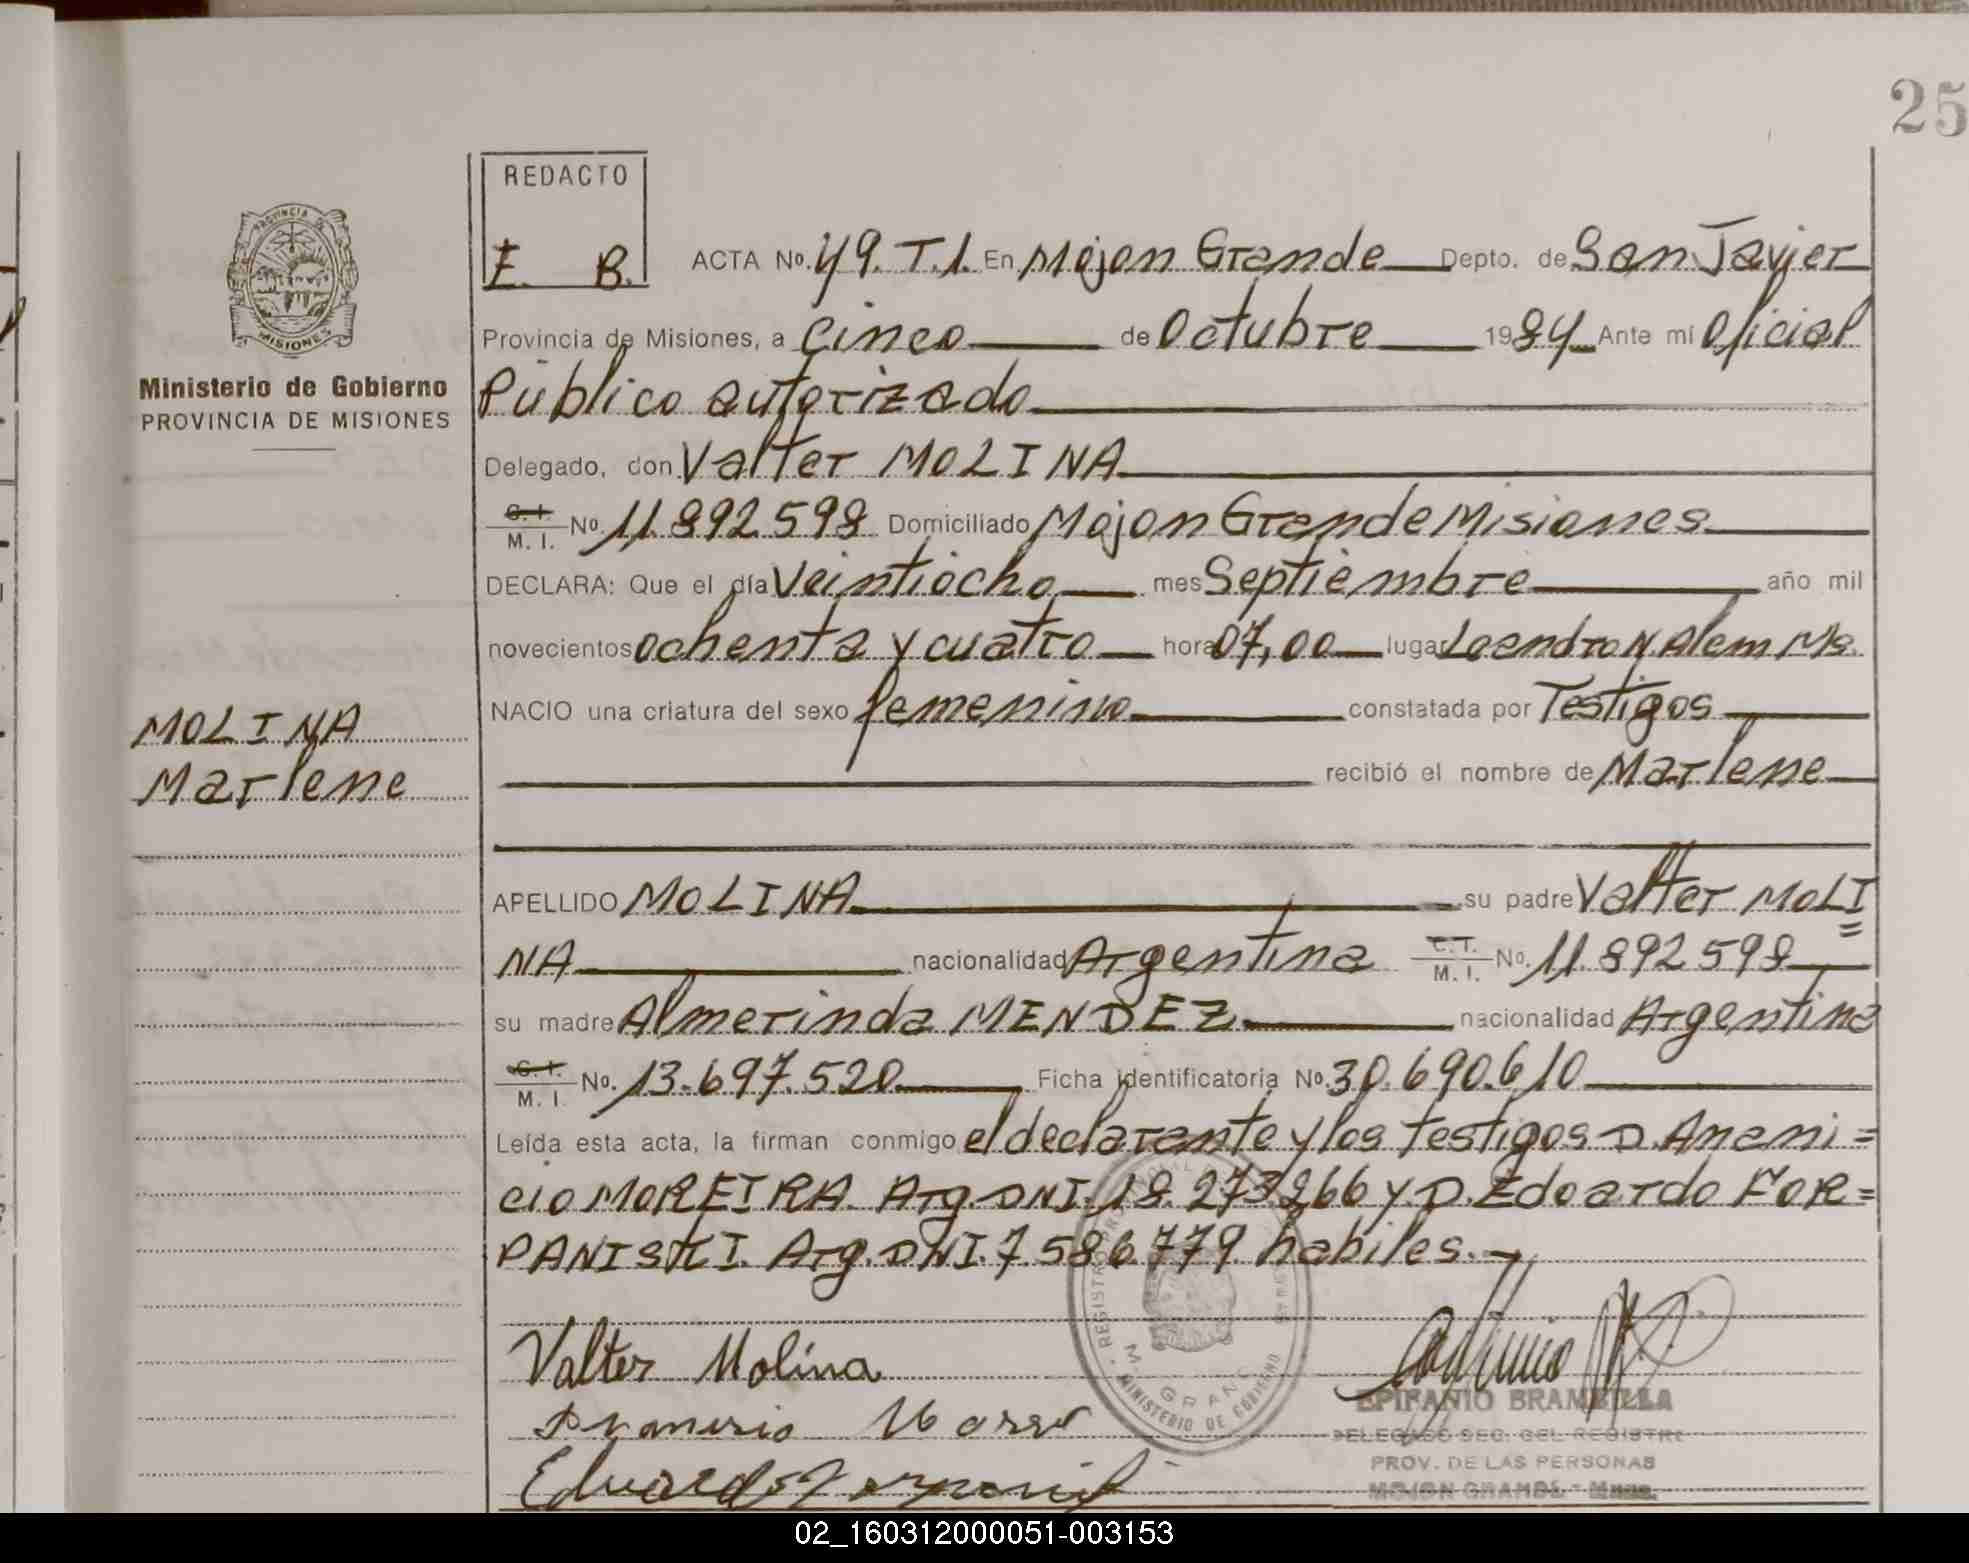 25
REDACTO
E. B.
ACTA No. 49. T.1. En Mojon Grande Depto. de San Javier
Provincia de Misiones, a Cinco de Octubre 1984 Ante mí Oficial
Público autorizado
Delegado, don Valter MOLINA
C. I. M. I. No. 11.892.598 Domiciliado Mojon Grande Misiones.
DECLARA: Que el día Veintiocho mes Septiembre año mil
novecientos ochenta y cuatro hora 07,00 lugar Leandro N. Alem Ms.
NACIO una criatura del sexo femenino constatada por Testigos
recibió el nombre de Marlene
APELLIDO MOLINA su padre Valter MOLI=
NA nacionalidad Argentina C.I. M. I. No. 11.892.598
su madre Almerinda MENDEZ nacionalidad Argentina
C. I. M. I. No. 13.697.520 Ficha identificatoria No. 30.690.610
Leída esta acta, la firman conmigo el declarante y los testigos D. Anani=
cio MOREIRA. Arg. DNI. 18.273.266 y D. Edoardo FOR=
PANISKI. Arg. DNI. 7.586.779. habiles.-
Valter Molina
Eduardo
PROVINCIA DE
MISIONES
Ministerio de Gobierno
PROVINCIA DE MISIONES
MOLINA
Marlene
REGISTRO
MINISTERIO DE GOBIERNO
M. GRANDE
EPIFANIO BRAMBILLA
DELEGADO SEC. DEL REGISTRO
PROV. DE LAS PERSONAS
MOJON GRANDE - Mnes.
02_160312000051-003153